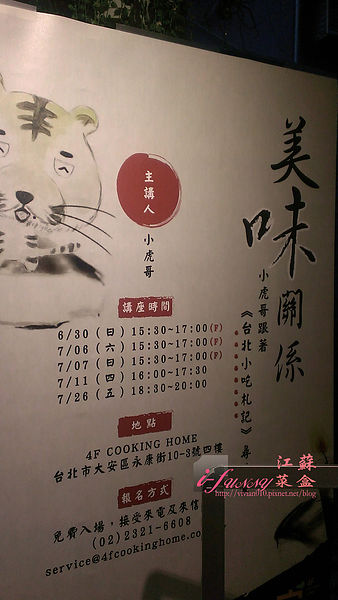 美味關係
小虎哥跟著
《台北小吃札記》尋
主講人
小虎哥
講座時間
6/30(日)15:30~17:00(F)
7/06(六)15:30~17:00(F)
7/07(日)15:30~17:00(F)
7/11(四)16:00~17:30
7/26(五)18:30~20:00
地點
4F COOKING HOME
台北市大安區永康街10-3號四樓
報名方式
免費入場，接受來電及來信
(02)2321-6608
service@4fcookinghome.co
江蘇
菜盒
ifunny
http://vivian010.pixnet.net/blog